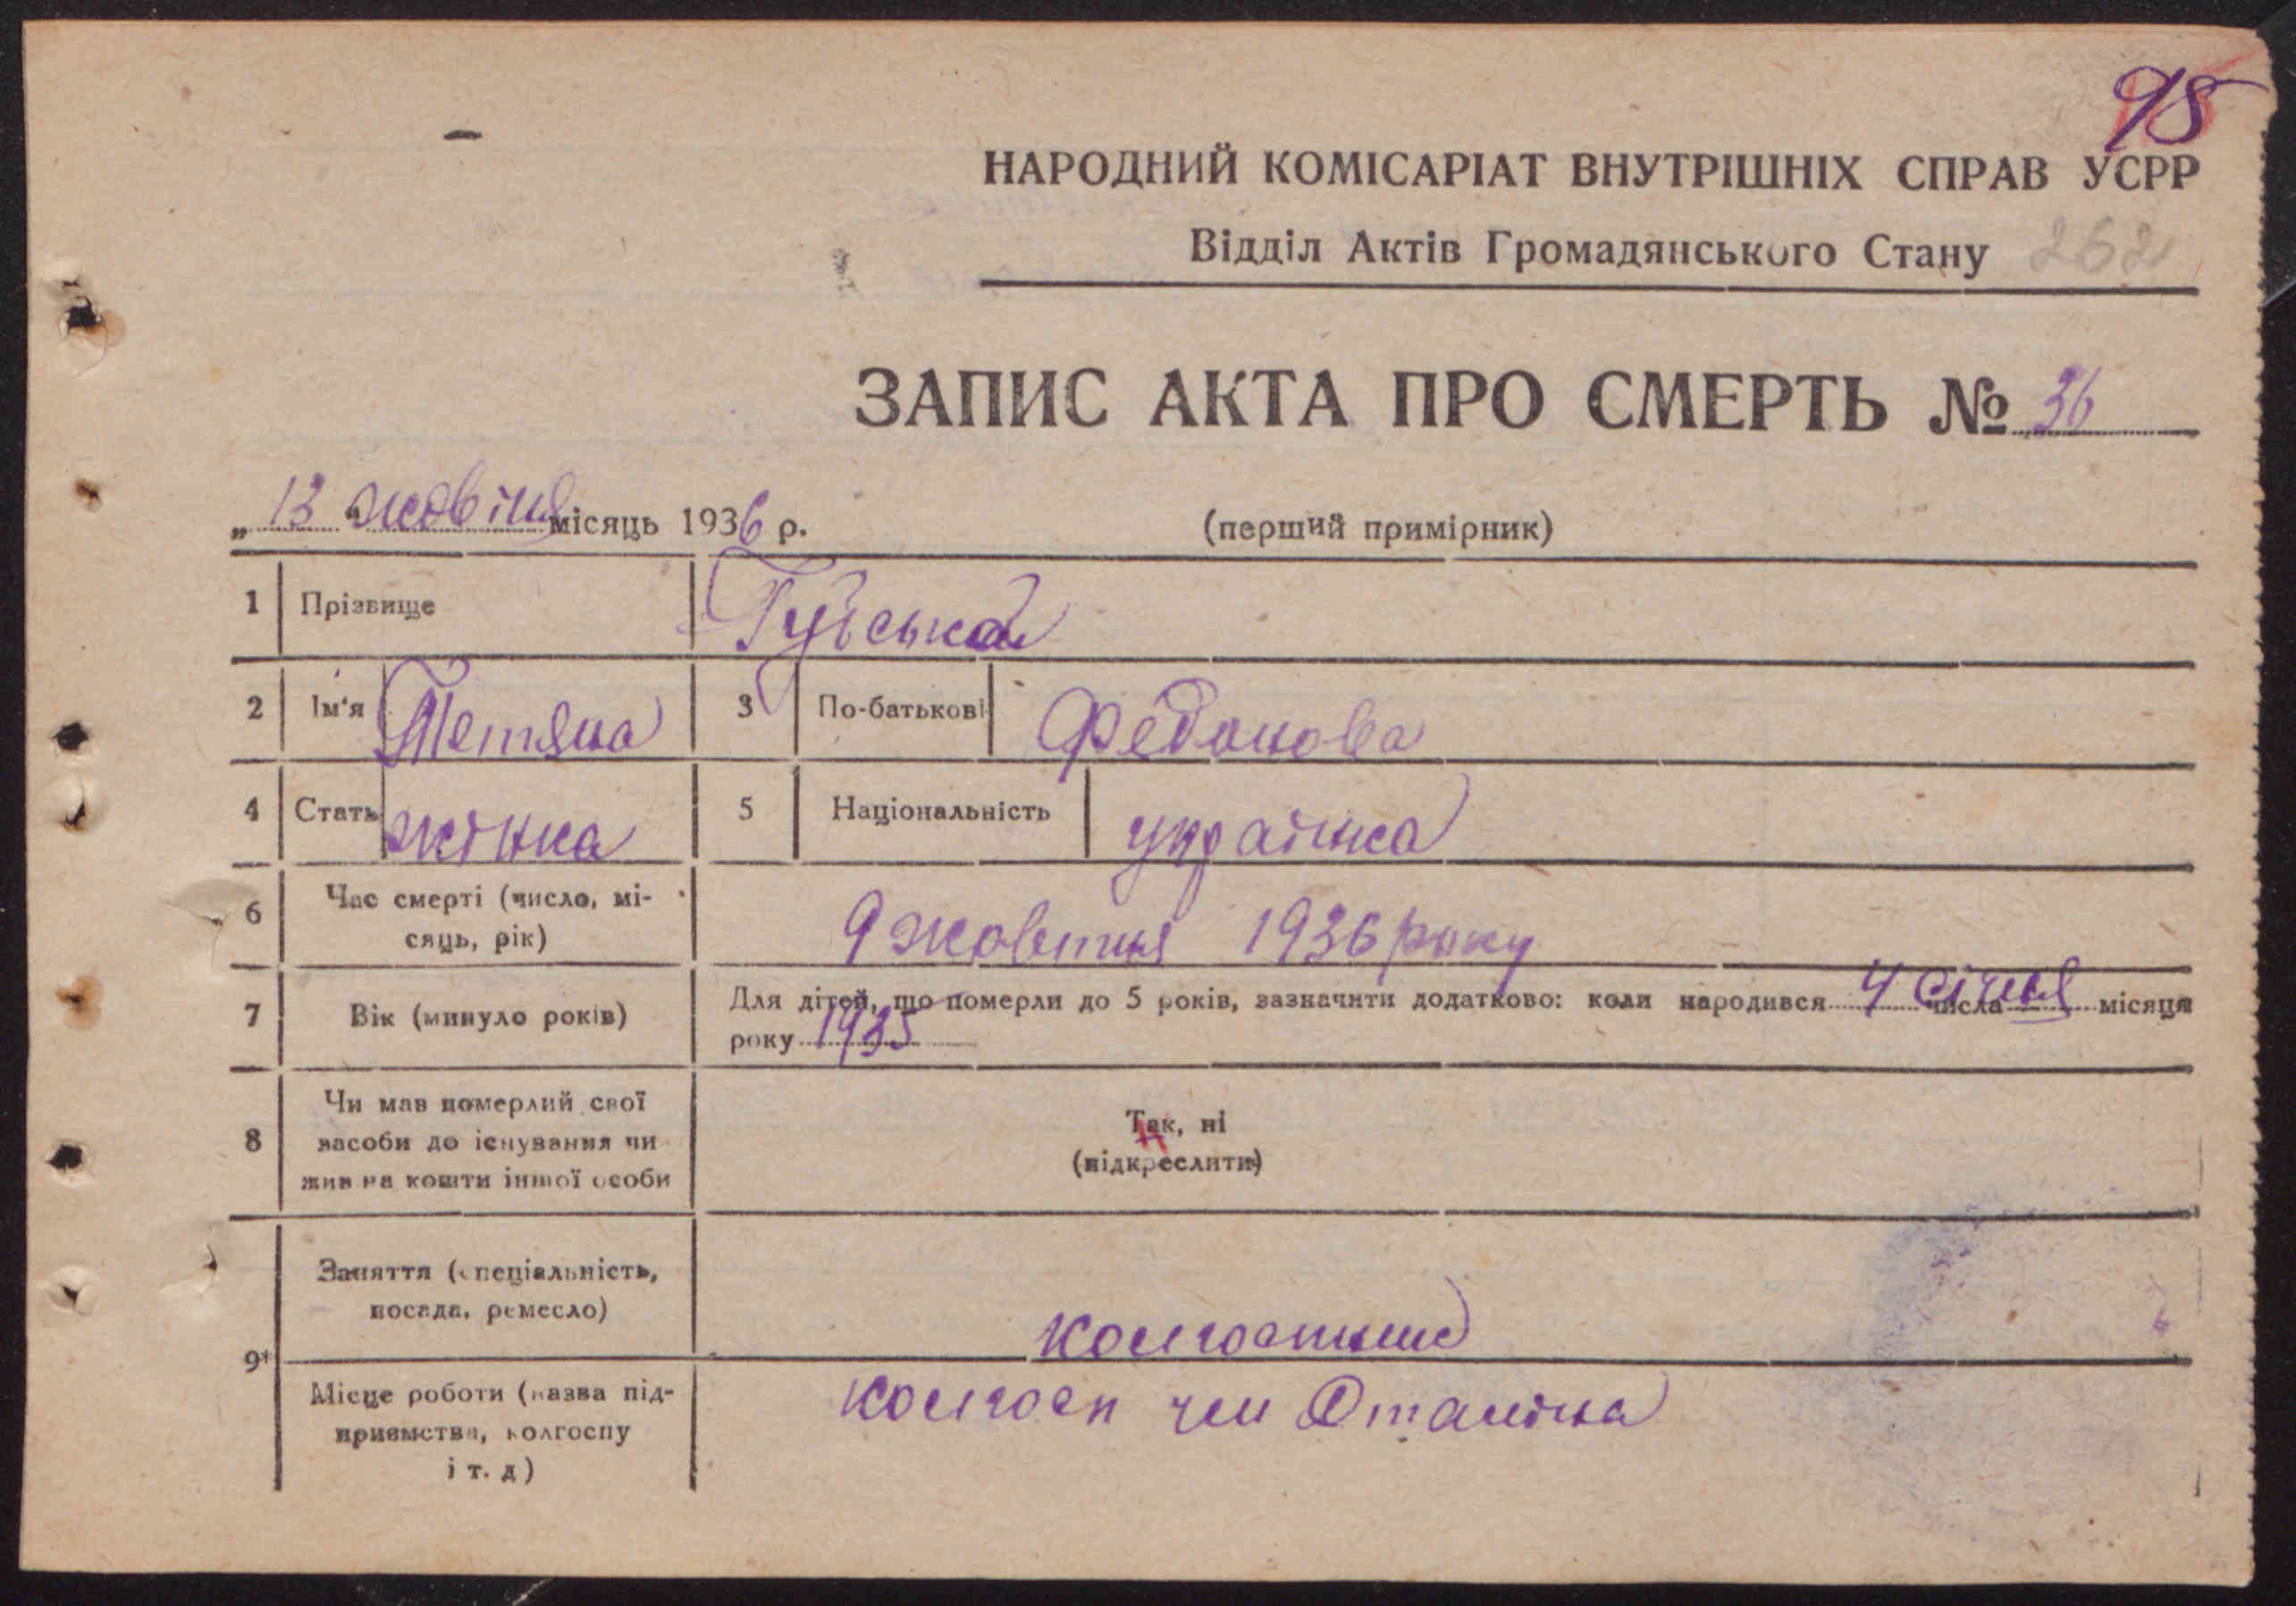 98
НАРОДНИЙ КОМІСАРІАТ ВНУТРІШНІХ СПРАВ УСРР
Відділ Актів Громадянського Стану 262
ЗАПИС АКТА ПРО СМЕРТЬ № 36
„ 13 “ жовтня місяць 1936 р. (перший примірник)
1 Прізвище
2 Ім'я Тетяна 3 По-батькові
4 Стать жінка 5 Національність українка
6 Час смерті (число, мі-
сяць, рік) 9 жовтня 1936 року
7 Вік (минуло років) Для дітей, що померли до 5 років, зазначити додатково: коли народився 4 січня числа місяця
року 1935
8 Чи мав померлий свої
засоби до існування чи
жив на кошти іншої особи
Так, ні
(підкреслити)
9* Заняття (спеціальність,
посада, ремесло)
Місце роботи (назва під-
приємства, колгоспу
і т. д) колгосп ім Сталіна